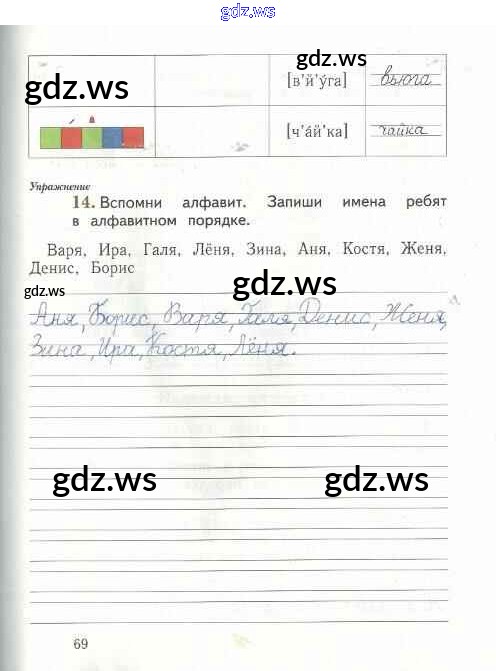 gdz.ws
gdz.ws
gdz.ws
[в'й'у́га] вьюга
[ч'а́й'ка] чайка
Упражнение
14. Вспомни алфавит. Запиши имена ребят
в алфавитном порядке.
Варя, Ира, Галя, Лёня, Зина, Аня, Костя, Женя,
Денис, Борис
gdz.ws
gdz.ws
Аня, Борис, Варя, Галя, Денис, Женя,
Зина, Ира, Костя, Лёня.
gdz.ws
gdz.ws
69